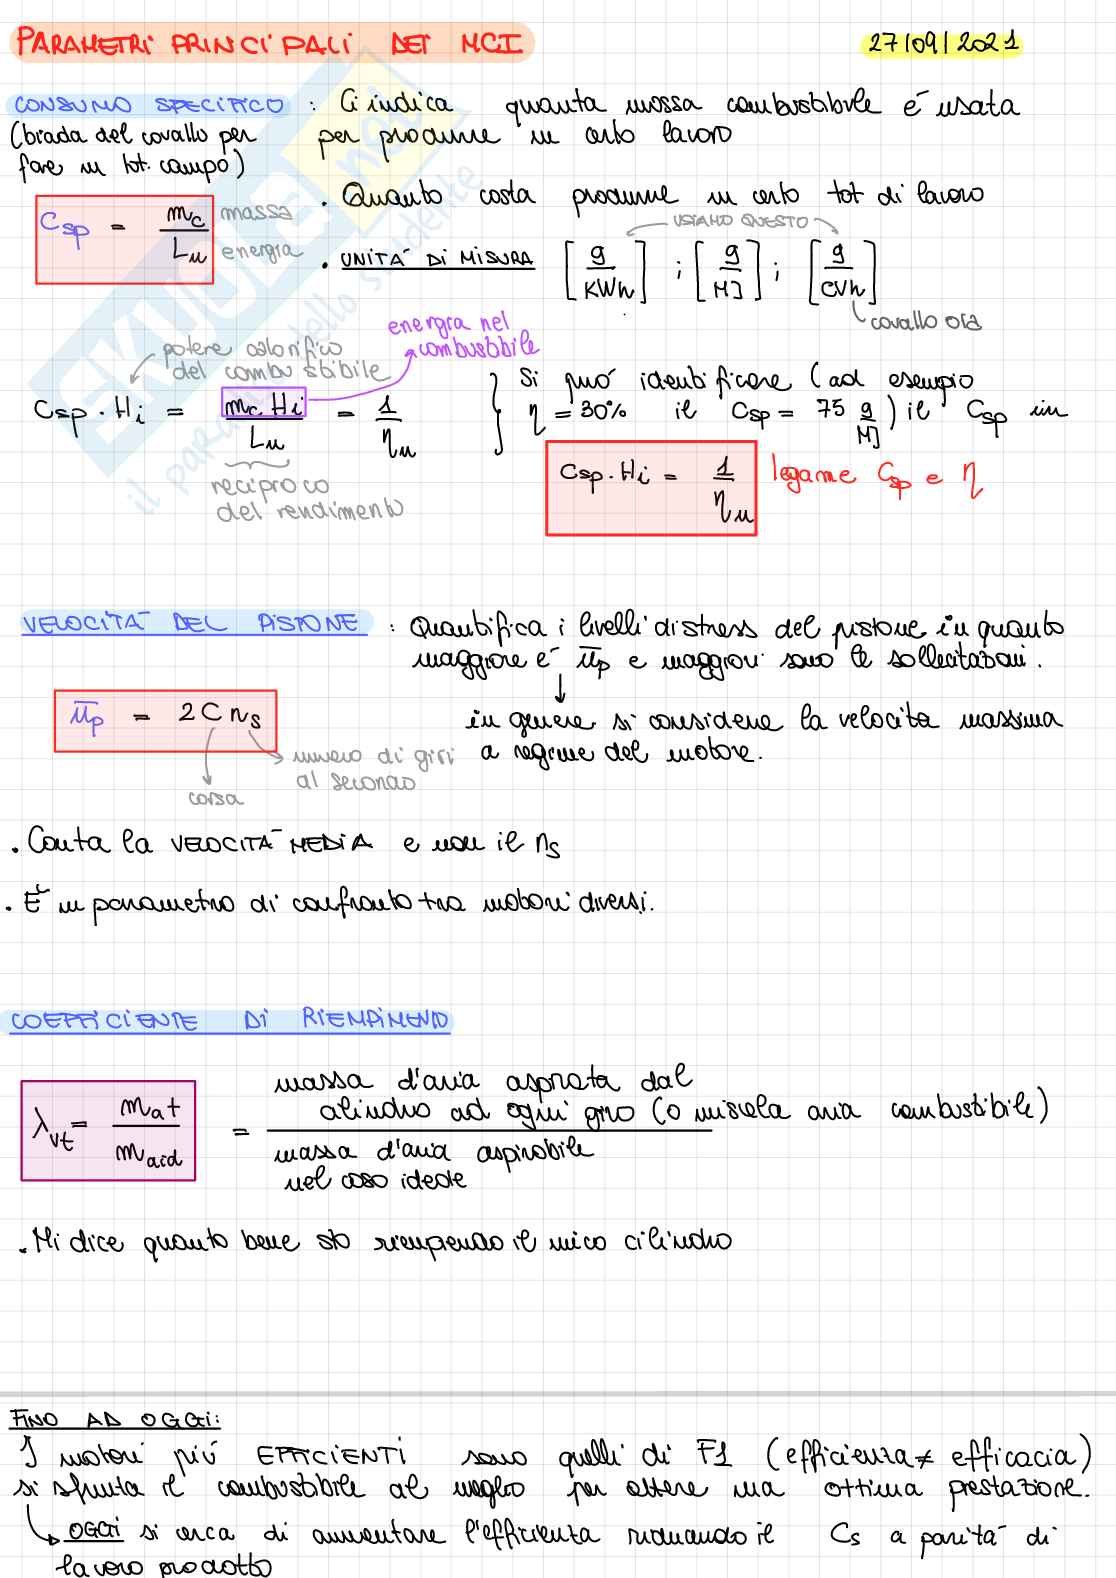 PARAMETRI PRINCIPALI DEI MCI
27/09/2021
CONSUMO SPECIFICO : Ci indica quanta massa combustibile é usata
(biada del cavallo per fare un tot. campo)
per produrre un certo lavoro
. Quanto costa produrre un certo tot di lavoro
Csp = mc / Lu
massa
energia
USIAMO QUESTO
. UNITÀ DI MISURA [g/KWh] ; [g/MJ] ; [g/CVh]
cavallo ora
potere calorifico del combustibile
energia nel combustibile
Csp · Hi = mc Hi / Lu = 1/ηu
reciproco del rendimento
Si puó identificare (ad esempio
η = 30% il Csp = 75 g/MJ) il Csp in
Csp · Hi = 1/ηu
legame Csp e η
VELOCITÀ DEL PISTONE : Quantifica i livelli di stress del pistone in quanto
maggiore é ūp e maggiori sono le sollecitazioni.
ūp = 2 C ns
in genere si considera la velocita massima
a regime del motore.
numero di giri al secondo
corsa
. Conta la VELOCITÀ MEDIA e non il ns
. È un parametro di confronto tra motori diversi.
COEFFICIENTE DI RIEMPIMENTO
λvt = mat / maid = massa d'aria aspirata dal
cilindro ad ogni giro (o miscela aria combustibile)
massa d'aria aspirabile
nel caso ideale
. Mi dice quanto bene sto riempiendo il mico cilindro
FINO AD OGGI:
I motori piú EFFICIENTI sono quelli di F1 (efficienza ≠ efficacia)
si sfrutta il combustibile al meglio per ottenere una ottima prestazione.
OGGI si cerca di aumentare l'efficienza riducendo il Cs a paritá di
lavoro prodotto
SKUOLA.net
il paradiso dello studente